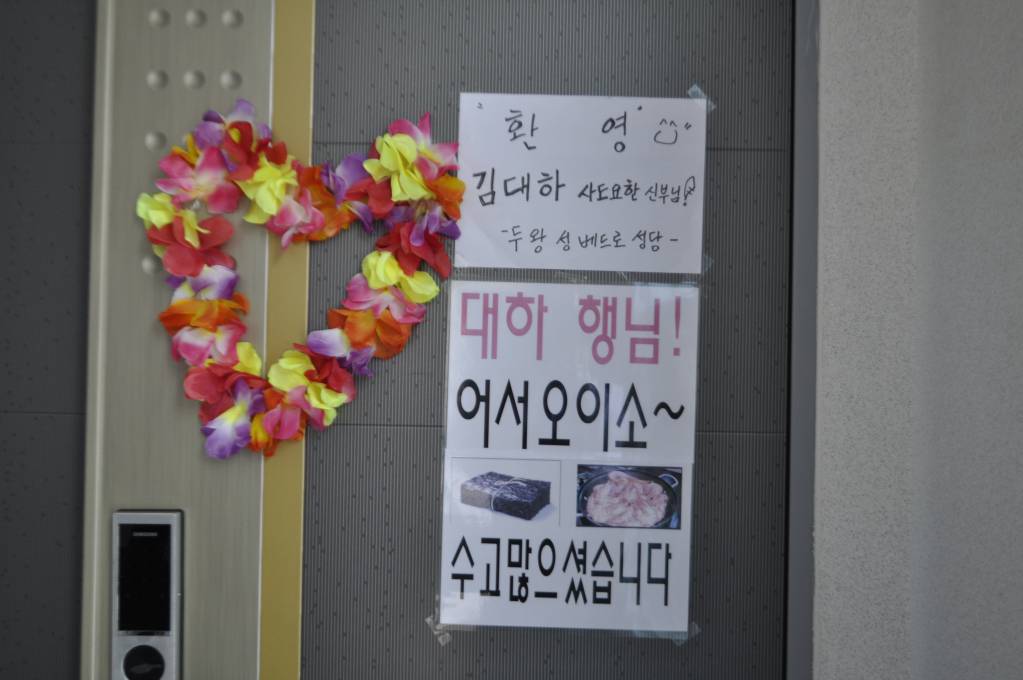 "환 영" ^^"
김대하 사도요한 신부님!
-두왕 성 베드로 성당-
대하 행님!
어서오이소~
수고많으셨습니다